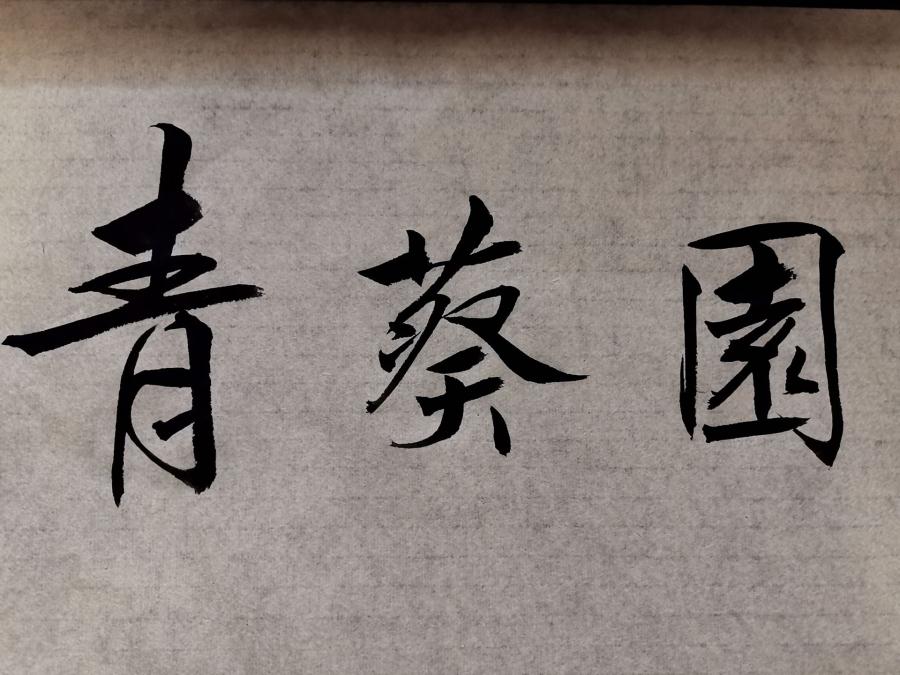 青葵園